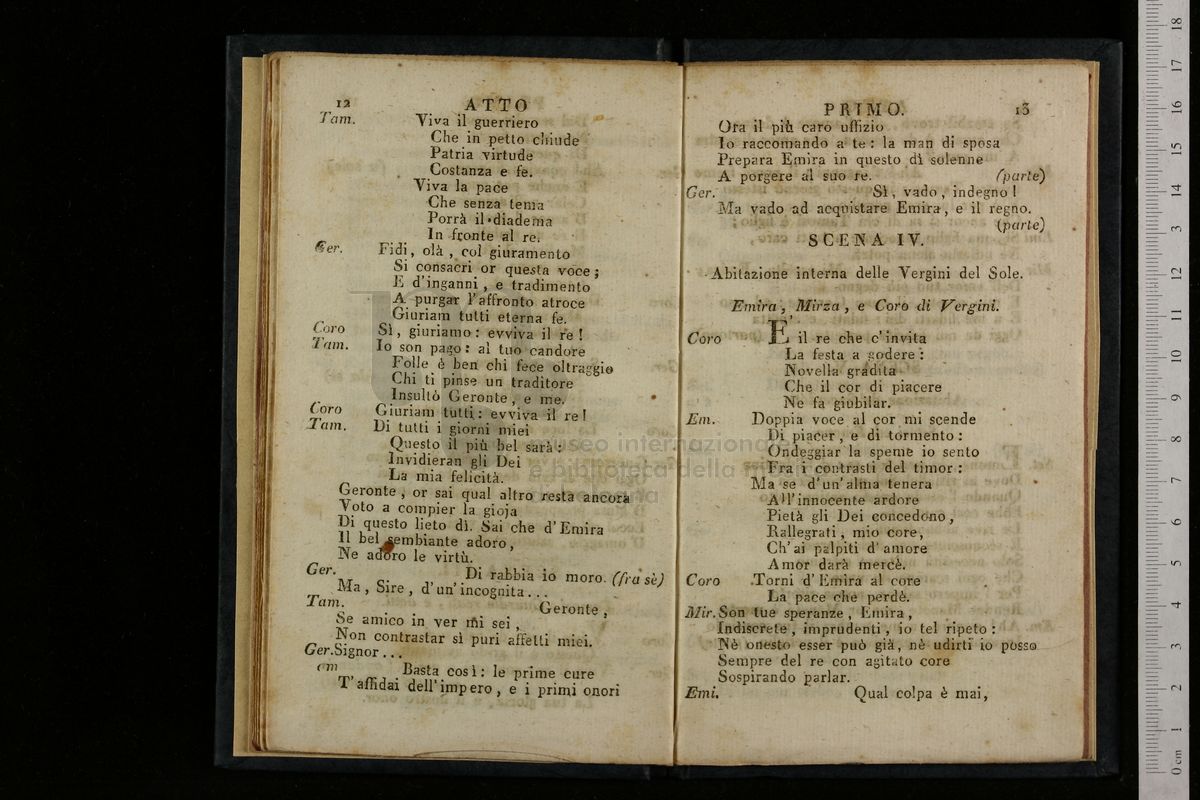 12 ATTO
Tam. Viva il guerriero
Che in petto chiude
Patria virtude
Costanza e fe.
Viva la pace
Che senza tema
Porrà il diadema
In fronte al re.
Ger. Fidi, olà, col giuramento
Si consacri or questa voce;
E d'inganni, e tradimento
A purgar l'affronto atroce
Giuriam tutti eterna fe.
Coro Sì, giuriamo: evviva il re!
Tam. Io son pago: al tuo candore
Folle è ben chi fece oltraggio
Chi ti pinse un traditore
Insultò Geronte, e me.
Coro Giuriam tutti: evviva il re!
Tam. Di tutti i giorni miei
Questo il più bel sarà:
Invidieran gli Dei
La mia felicità.
Geronte, or sai qual altro resta ancora
Voto a compier la gioja
Di questo lieto dì. Sai che d'Emira
Il bel sembiante adoro,
Ne adoro le virtù.
Ger. Di rabbia io moro. (fra sè)
Ma, Sire, d'un'incognita...
Tam. Geronte,
Se amico in ver mi sei,
Non contrastar sì puri affetti miei.
Ger. Signor...
am Basta così: le prime cure
T'affidai dell'impero, e i primi onori
PRIMO. 13
Ora il più caro uffizio
Io raccomando a te: la man di sposa
Prepara Emira in questo dì solenne
A porgere al suo re. (parte)
Ger. Sì, vado, indegno!
Ma vado ad acquistare Emira, e il regno.
(parte)
SCENA IV.
Abitazione interna delle Vergini del Sole.
Emira, Mirza, e Coro di Vergini.
Coro E' il re che c'invita
La festa a godere:
Novella gradita
Che il cor di piacere
Ne fa giubilar.
Em. Doppia voce al cor mi scende
Di piacer, e di tormento:
Ondeggiar la speme io sento
Fra i contrasti del timor:
Ma se d'un'alma tenera
All'innocente ardore
Pietà gli Dei concedono,
Rallegrati, mio core,
Ch'ai palpiti d'amore
Amor darà mercè.
Coro Torni d'Emira al core
La pace che perdè.
Mir. Son tue speranze, Emira,
Indiscrete, imprudenti, io tel ripeto:
Nè onesto esser può già, nè udirti io posso
Sempre del re con agitato core
Sospirando parlar.
Emi. Qual colpa è mai,
museo internazionale
e biblioteca della
0 cm 1 2 3 4 5 6 7 8 9 10 11 12 13 14 15 16 17 18